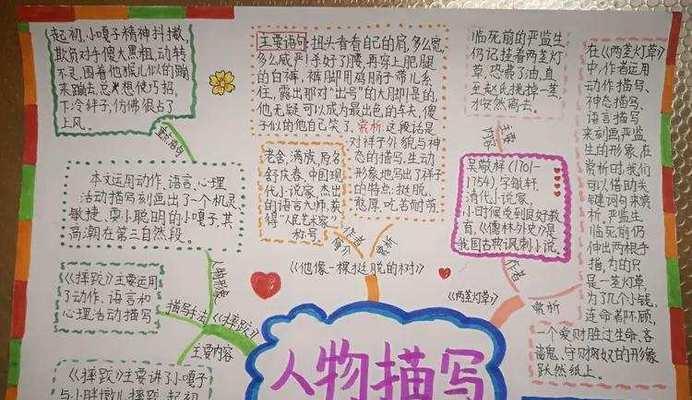 起初,小嘎子精神抖擞
欺负对手傻大黑粗,动转
不灵,围着他猴儿似的蹦
来蹦去总想使巧招,
下冷绊子,仿佛狠占了
上风。
重点语句
本文运用动作、语言、心理
活动描写刻画出了一个机灵、
敏捷、要小聪明的小嘎子,其
高潮在第三自然段。
人物形象
《摔跤》主要运用
了动作、语言和
心理活动描写
描写手法
《摔跤》
主要内容
《摔跤》主要讲了小嘎子
与小胖墩儿摔跤,起初
主要语句:扭头看看自己的肩,多么宽,
多么威严!杀好了腰,再穿上肥腿
的白裤,裤脚用鸡肠子带儿系
住,露出那对"出号"的大脚!是的,
他无疑可以成为最出色的车夫,傻
子似的他自己笑了。赏析:这段话是
对祥子外貌与神
态的描写,生动
形象地写出了祥子
的特点:挺脱、
憨厚、吃苦耐劳。
老舍,满族,原名
舒庆春,中国现
代小说家,杰出
的语言大师,获
得"人民艺术家"
称号。
作者
简介
赏析
《他像一棵挺脱的树》
人物描写
临死前的严监生
仍记挂着两茎灯
草,恐费了油,直
至赵氏挑掉一茎
才安然离去。
主要
内容
吴敬梓(1701-
1754),字敏轩,
清代小说家,
小时候受到良好教
育,《儒林外史》是
我国古典讽刺小说。
作者
《两茎灯草》
赏析
在《两茎灯草》
中,作者运用
动作描写、
神态描写、
语言描写
来刻画严监
生的形象,在
赏析时,我们
可以借助关
键词句来赏
析,严监生
临死前仍
伸出两根手
指,为的只
是一茎灯草,
为了几个小钱,
连命都不顾,
一个爱财胜过生命、吝
啬鬼、守财奴的形象
跃然纸上。